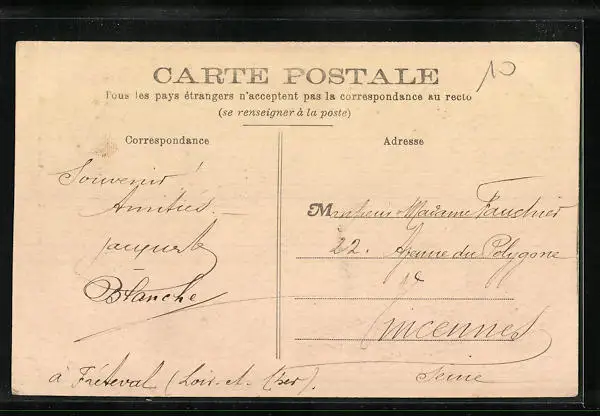 10
CARTE POSTALE
Tous les pays étrangers n'acceptent pas la correspondance au recto
(se renseigner à la poste)
Correspondance
Souvenirs
Amitiés
Blanche
à Fréteval (Loir-et-Cher).
Adresse
Monsieur Madame Fauchier
22. Avenue du Polygone
Vincennes
Seine